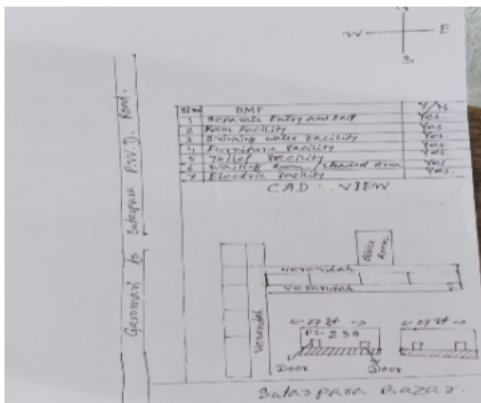 N
W E
S
Sl no BMF Y/N
1 Separate Entry and Exit Yes.
2 Ram Facility Yes
3 Drinking water Facility Yes
4 Furniture facility Yes.
5 Toilet Facility Yes.
6 Waiting Room / shaded area Yes.
7 Electric Facility Yes.
CAD VIEW
to Sutarpara P.W.D. Road.
Office Room
verandah
verandah
Verandah
PS-238
Door Door
Sutarpara Bazar.